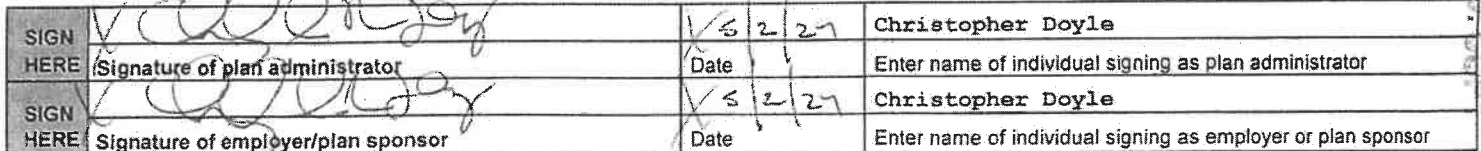 SIGN HERE 5/2/24 Christopher Doyle
Signature of plan administrator Date Enter name of individual signing as plan administrator
SIGN HERE 5/2/24 Christopher Doyle
Signature of employer/plan sponsor Date Enter name of individual signing as employer or plan sponsor